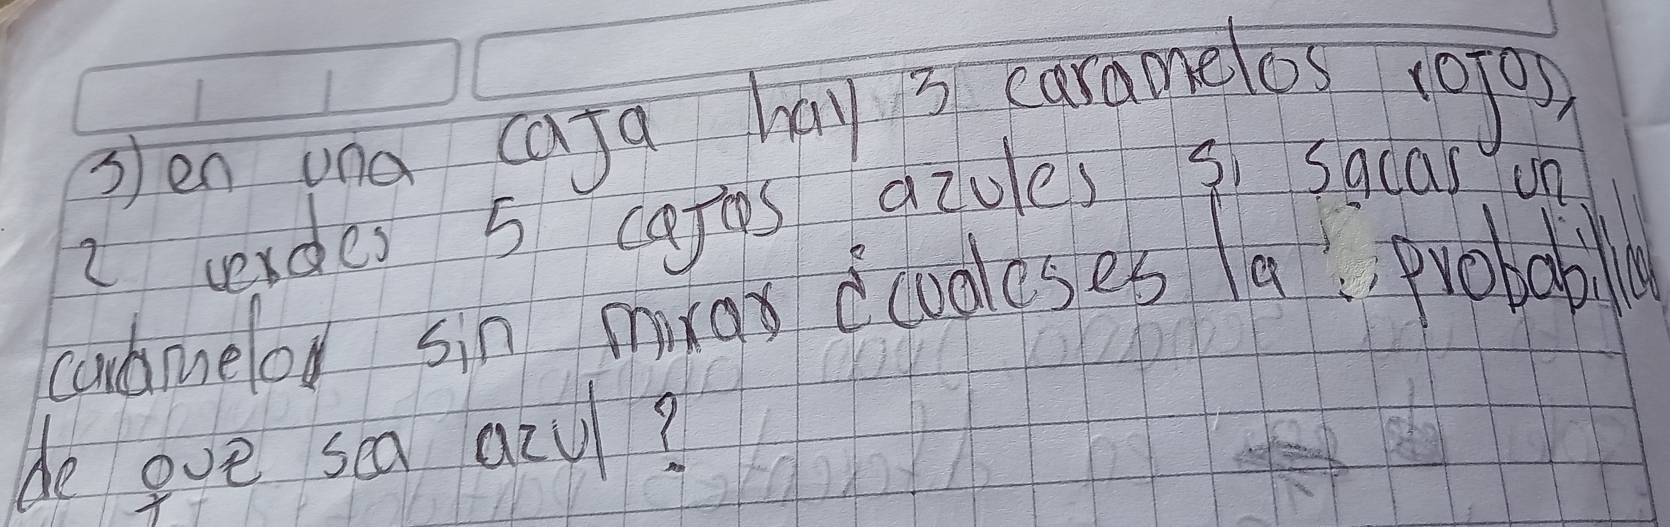 3) en una caja hay 3 caramelos rojos,
2 verdes 5 cajas azules si sacas un
caramelo sin mirar ¿cualeses la probabilidad
de que sea azul?